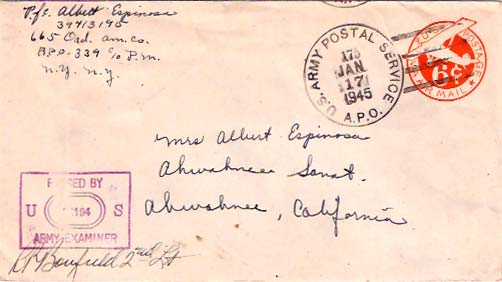 Pfc. Albert Espinosa
39413195
665 Ord. am. co.
A.P.O. 339 c/o P.M.
N.Y. N.Y.
U.S. ARMY POSTAL SERVICE
175
JAN
17
1945
A.P.O.
U.S. POSTAGE
6¢
VIA AIR MAIL
Mrs Albert Espinosa
Ahwahnee Sanat.
Ahwahnee, California
PASSED BY
U S
ARMY EXAMINER
2nd Lt